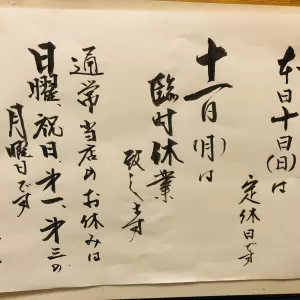 本日十日(日)は
定休日です
十一日(月)は
臨時休業
致します
通常当店のお休みは
日曜、祝日、第一、第三の
月曜日です